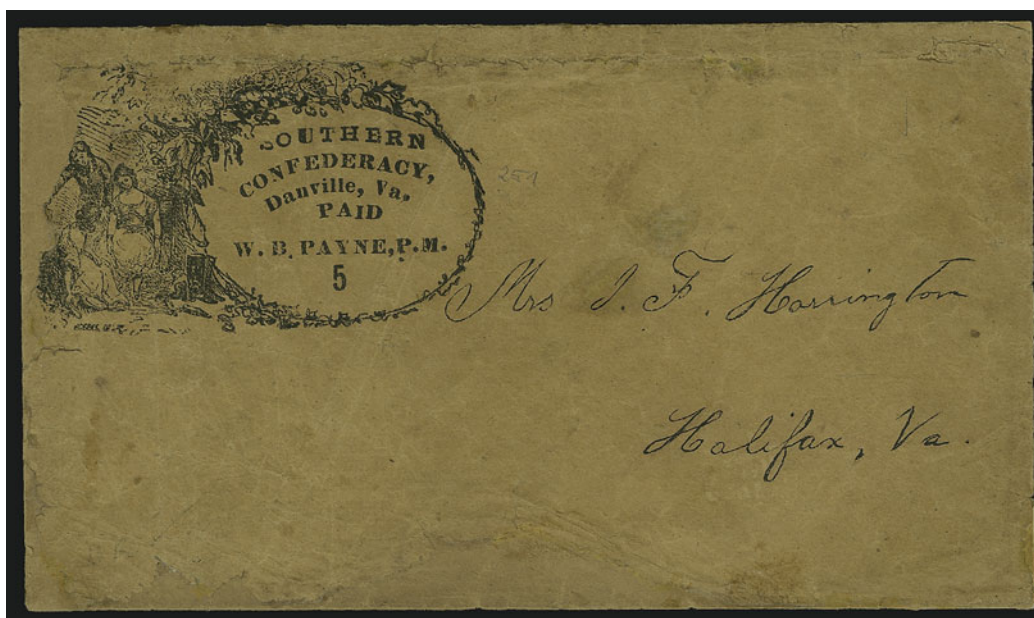 SOUTHERN
CONFEDERACY,
Danville, Va.
PAID
W. B. PAYNE, P.M.
5
251
Mrs I. F. Harrington
Halifax, Va.